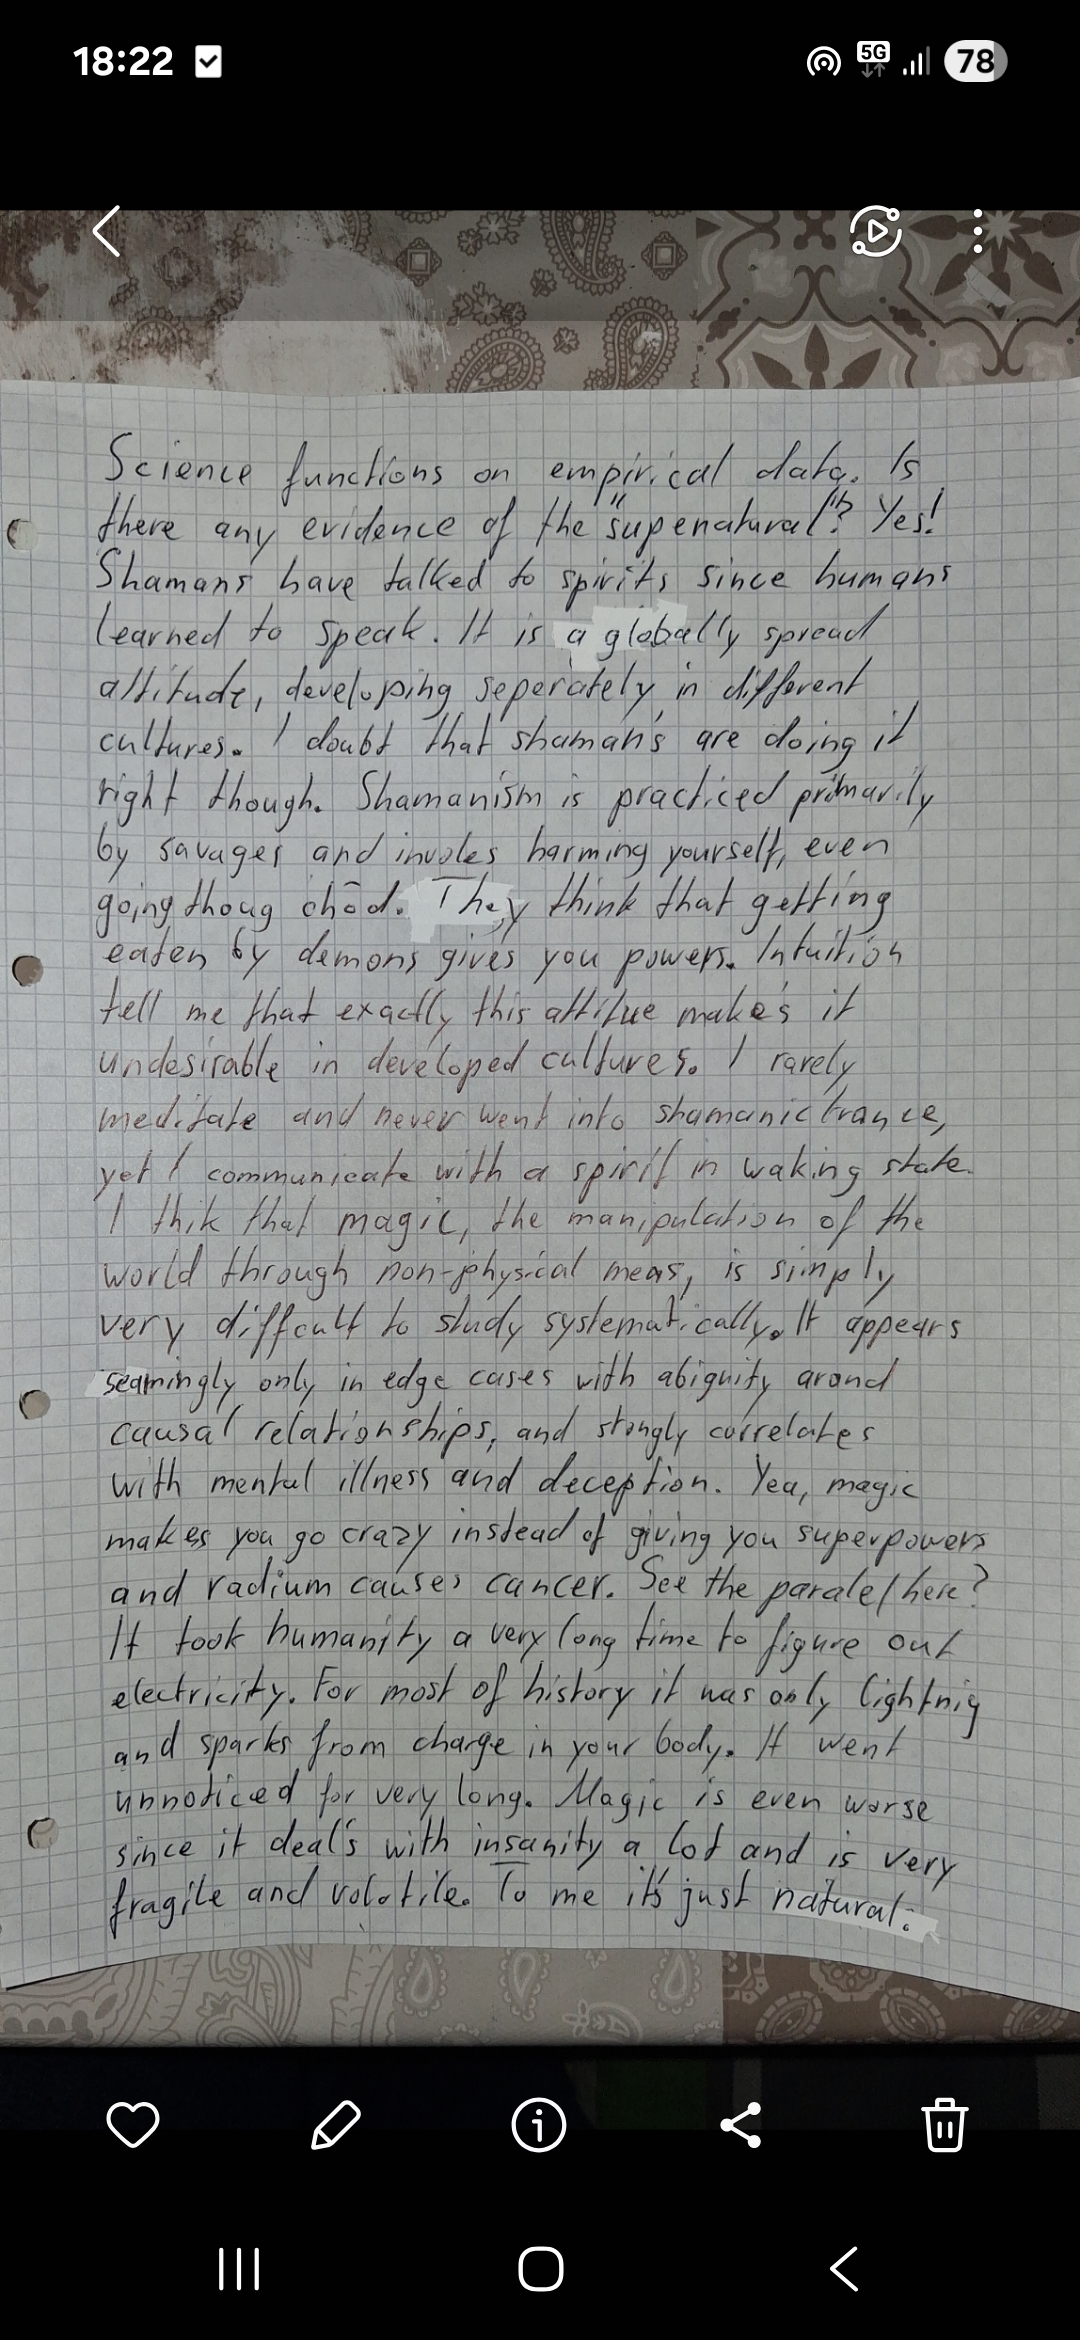 18:22
5G
78
Science functions on empirical data. Is
there any evidence of the "supenatural"? Yes!
Shamans have talked to spirits since humans
learned to speak. It is a globally spread
attitude, developing seperately in different
cultures. I doubt that shaman's are doing it
right though. Shamanism is practiced primarily
by savages and involes harming yourself, even
going thoug chöd. They think that getting
eaten by demons gives you powers. Intuition
tell me that exactly this attitue makes it
undesirable in developed cultures. I rarely
meditate and never went into shamanic trance,
yet I communicate with a spirit in waking state.
I thik that magic, the manipulation of the
world through non-physical meas, is simply
very diffcult to study systematically. It appears
seamingly only in edge cases with abiguity arond
causal relationships, and stongly correlates
with mental illness and deception. Yea, magic
makes you go crazy instead of giving you superpowers
and radium causes cancer. See the paralel here?
It took humanity a very long time to figure out
electricity. For most of history it was only lightnig
and sparks from charge in your body. It went
unnoticed for very long. Magic is even worse
since it deals with insanity a lot and is very
fragile and volatile. To me it's just natural.